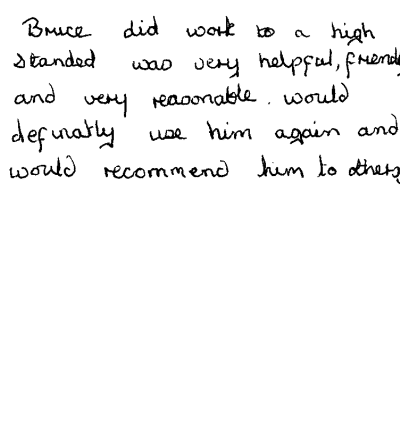 Bruce did work to a high
standed was very helpful, friendly
and very reasonable. would
definatly use him again and
would recommend him to others